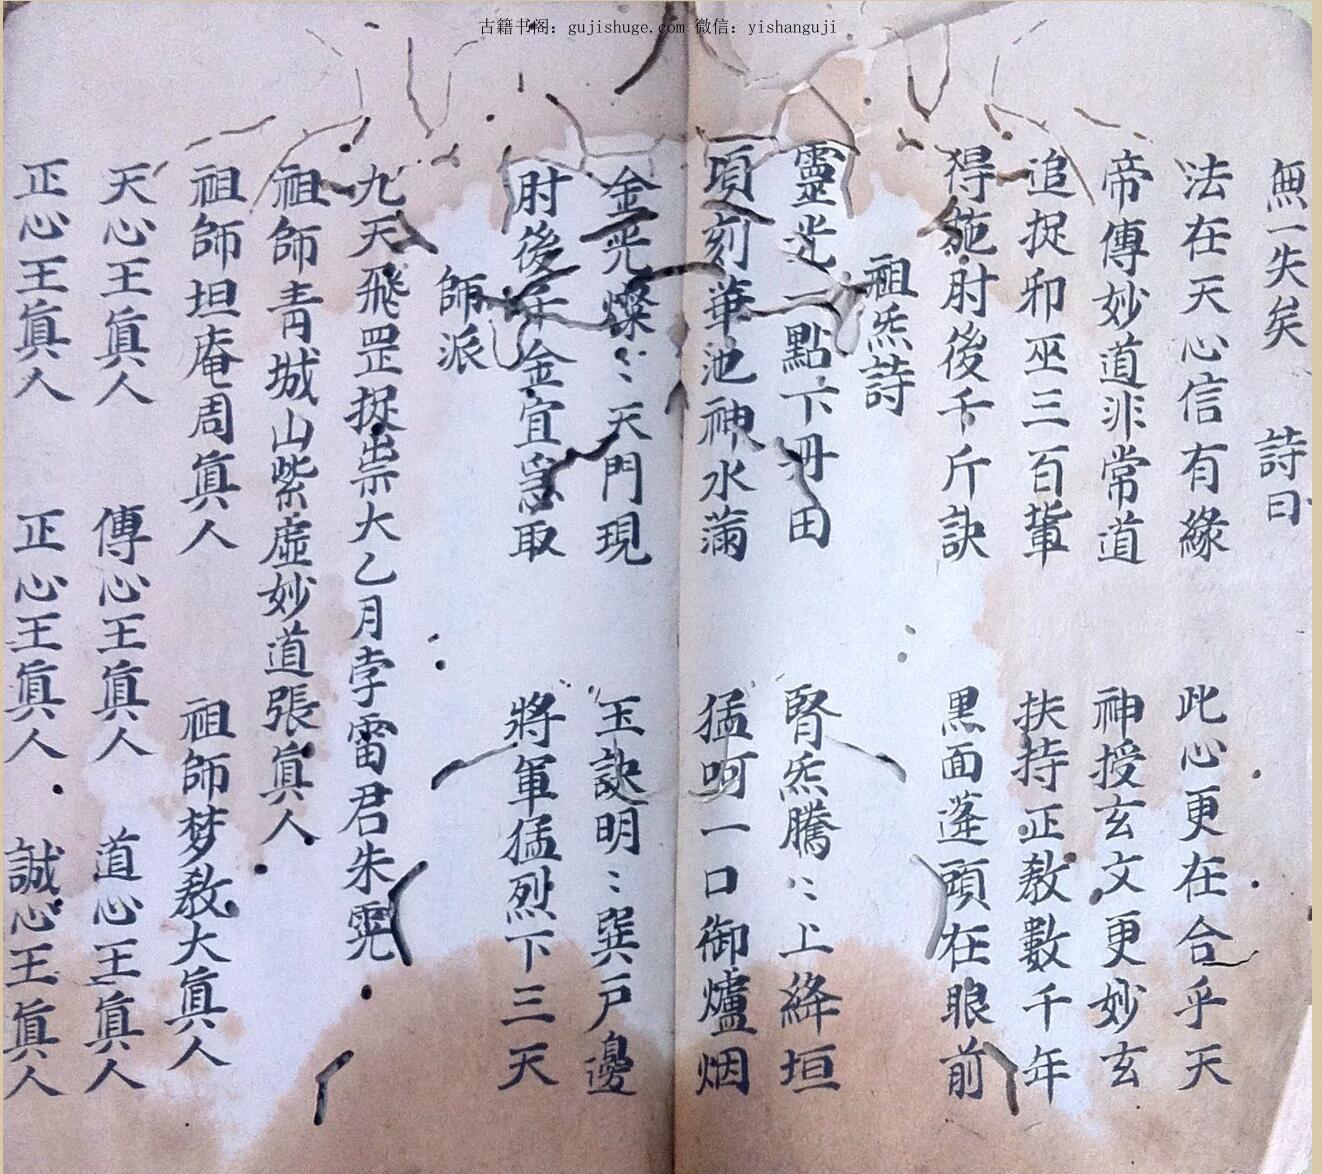 古籍书阁：gujishuge.com 微信：yishanguji
無一失矣 詩曰
法在天心信有緣 此心更在合乎天
帝傳妙道非常道 神授玄文更妙玄
追捉卯巫三百輩 扶持正教數千年
得施肘後千斤訣 黑面蓬頭在眼前
祖炁詩
靈光一點下丹田 腎炁騰〻上絳垣
頃刻華池神水滿 猛呵一口御爐烟
金光燦〻天門現 玉訣明〻巽戸邊
肘後千金宜急取 將軍猛烈下三天
師派
九天飛罡捉祟大乙月孛雷君朱
祖師青城山紫虛妙道張真人
祖師坦庵周真人 祖師梦教大真人
天心王真人 傳心王真人 道心王真人
正心王真人 正心王真人 誠心王真人